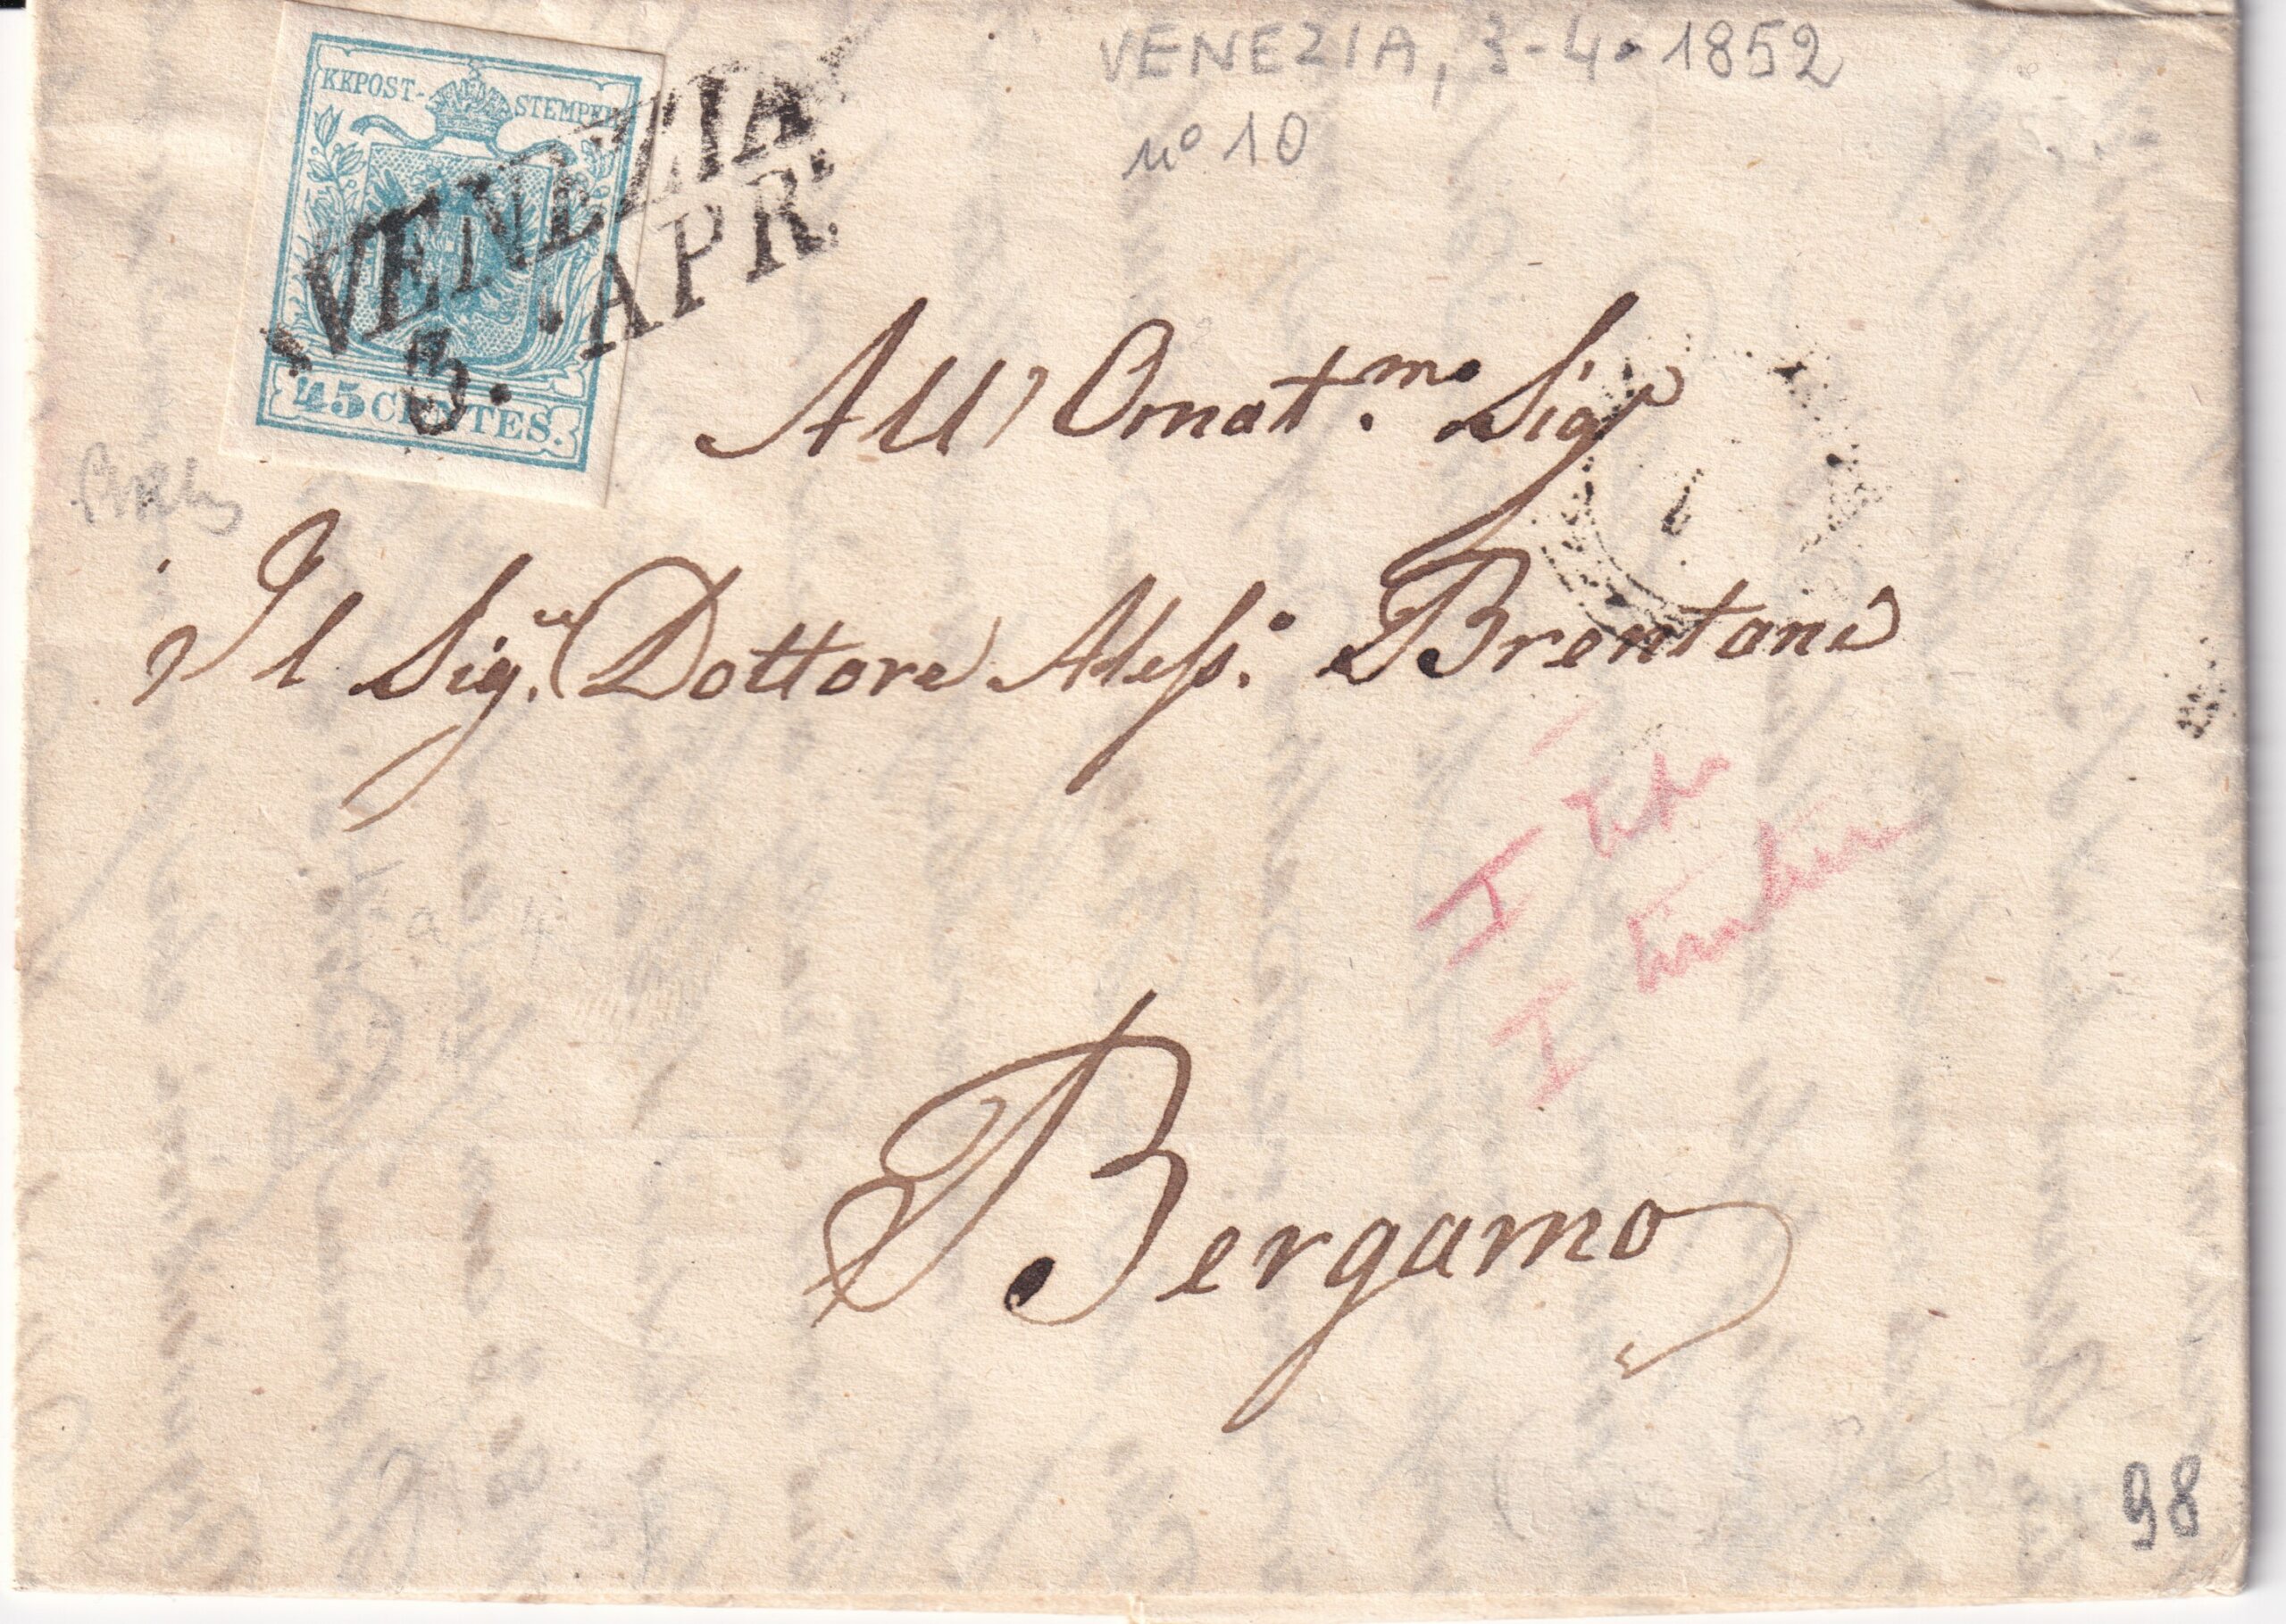 VENEZIA, 3-4-1852
n° 10
KKPOST-STEMPEL
VENEZIA
3. APR.
45 CENTES.
All' Ornat.mo Sigr
Il Sig.r Dottore Aless.o Brentani
I
I
Bergamo
98